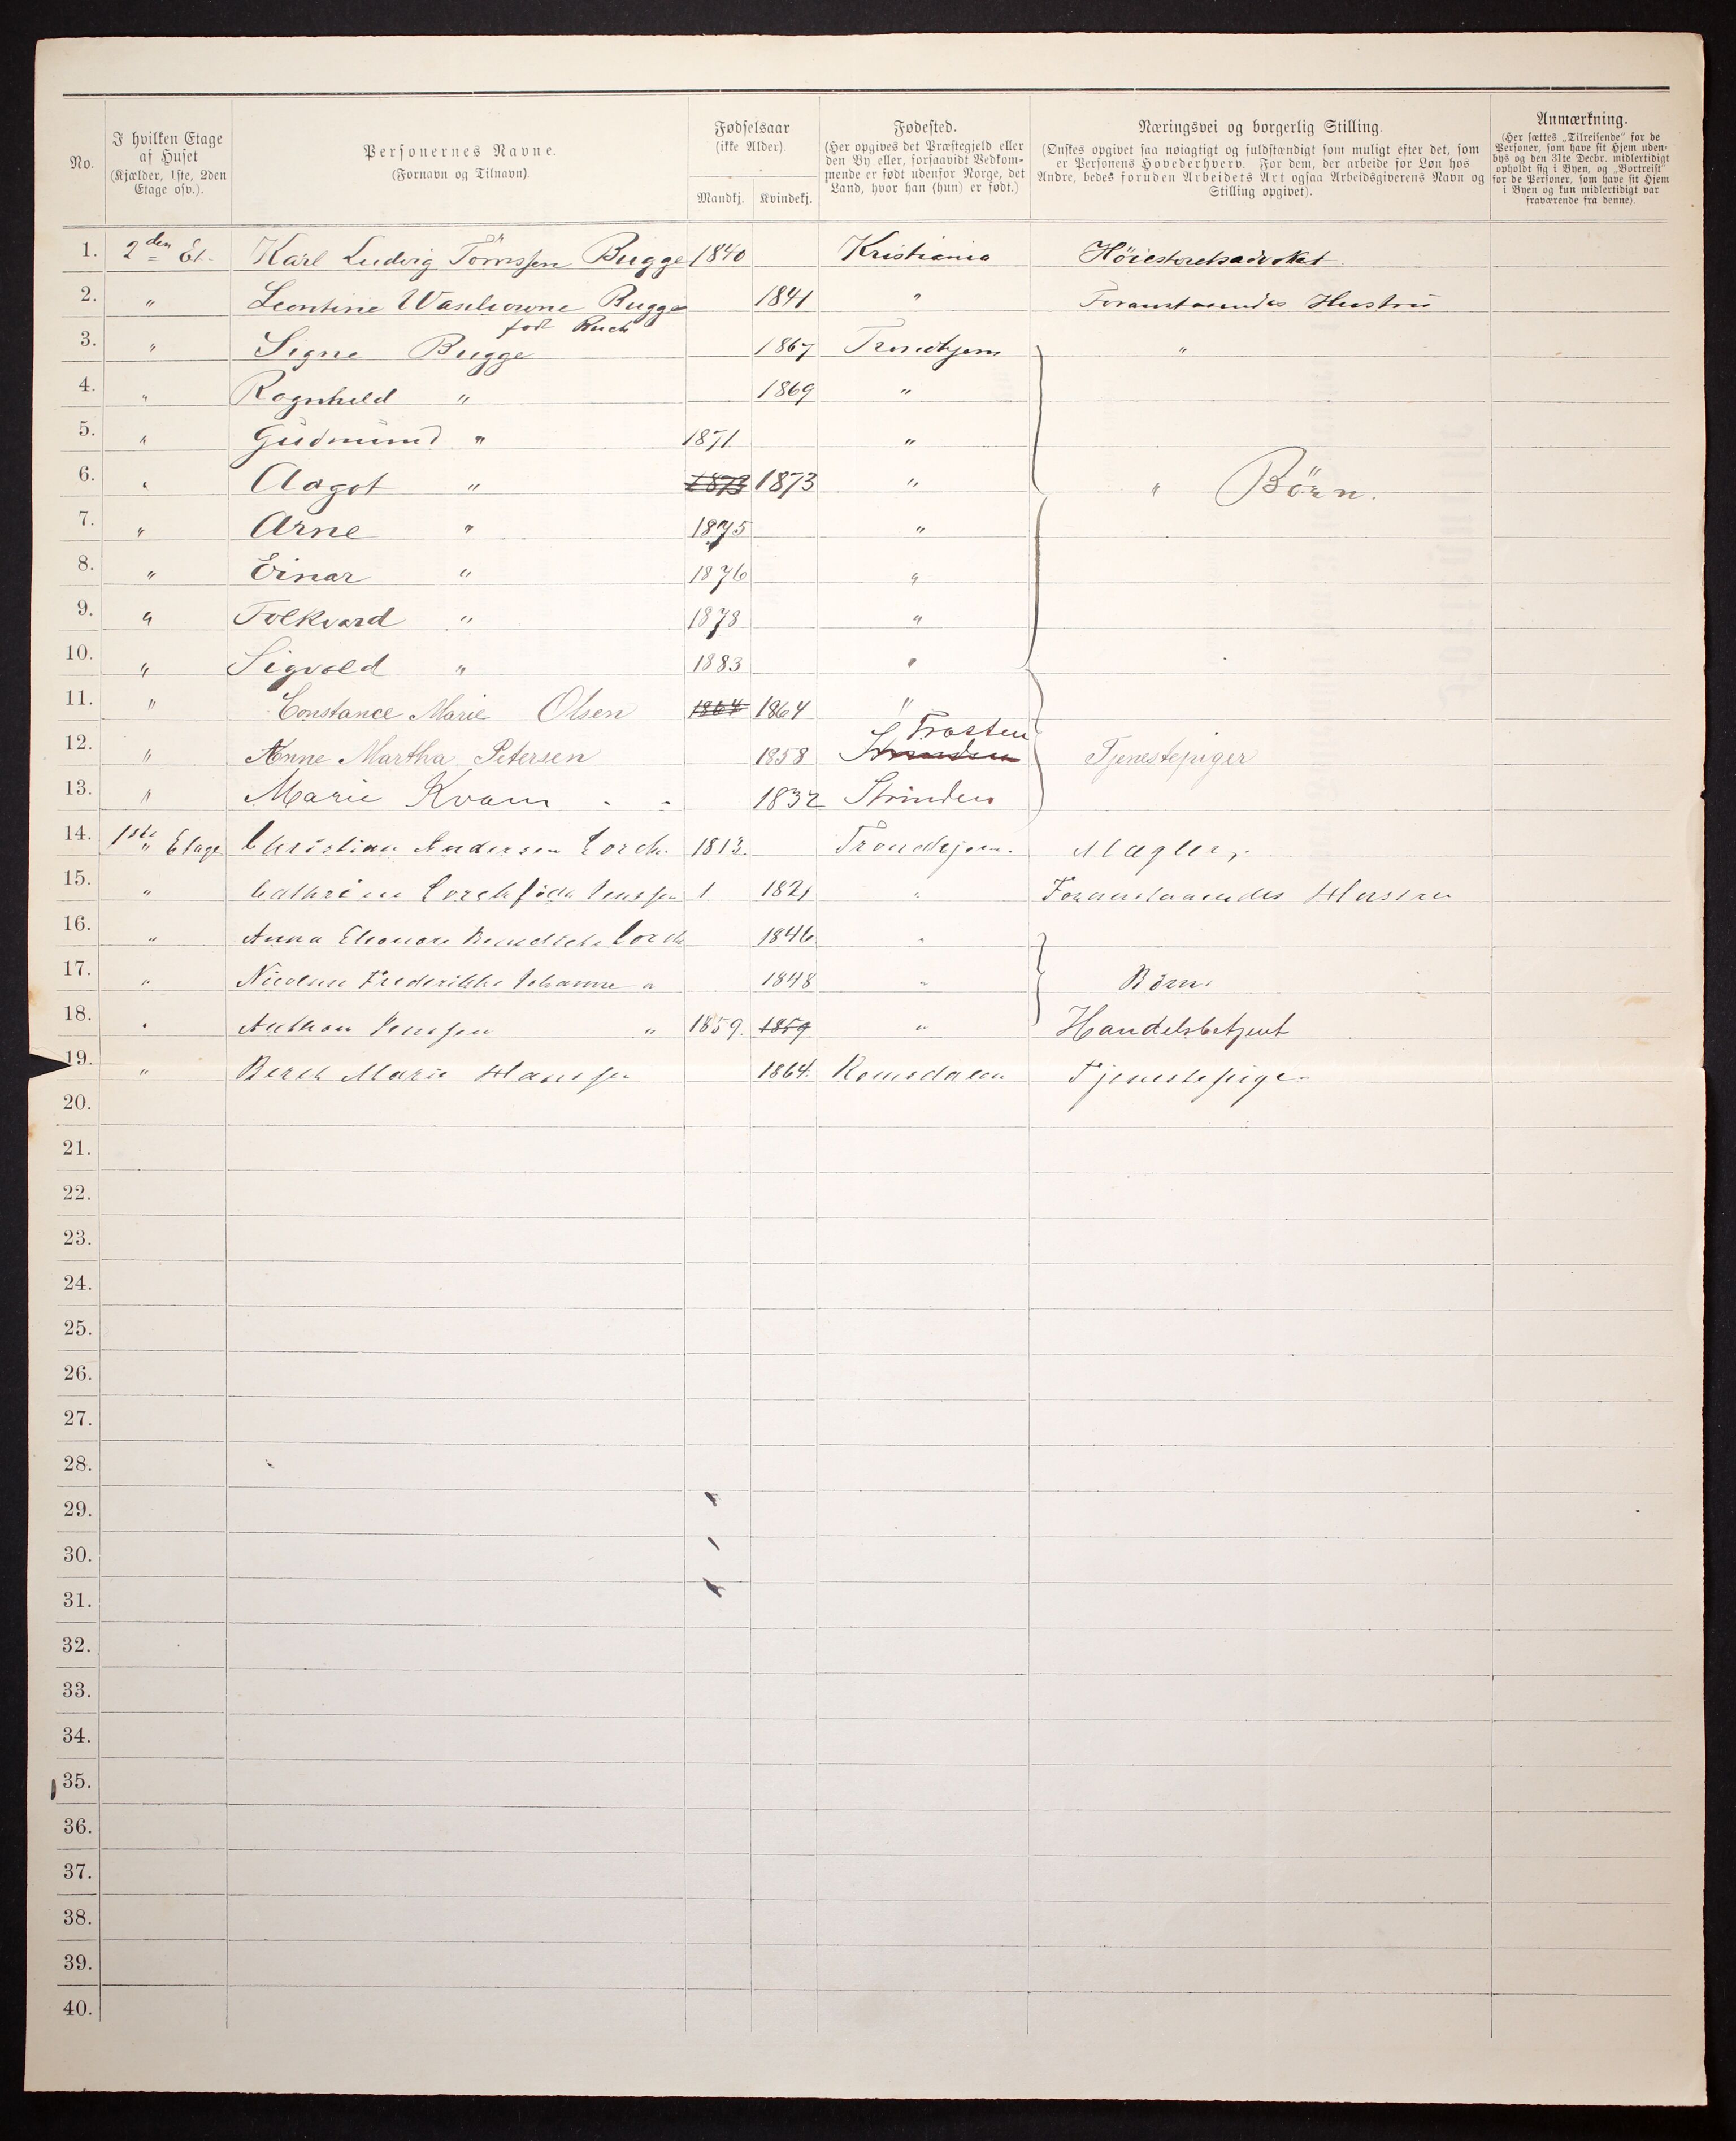 No.
I hvilken Etage
af Huset
(Kjælder, 1ste, 2den
Etage osv.).
Personernes Navne.
(Fornavn og Tilnavn).
Fødselsaar
(ikke Alder).
Mandkj. Kvindekj.
Fødested.
(Her opgives det Præstegjeld eller
den By eller, forsaavidt Vedkom-
mende er født udenfor Norge, det
Land, hvor han (hun) er født.)
Næringsvei og borgerlig Stilling.
(Ønskes opgivet saa nøiagtigt og fuldstændigt som muligt efter det, som
er Personens Hovederhverv. For dem, der arbeide for Løn hos
Andre, bedes foruden Arbeidets Art ogsaa Arbeidsgiverens Navn og
Stilling opgivet).
Anmærkning.
(Her sættes „Tilreisende“ for de
Personer, som have sit Hjem uden-
bys og den 31te Decbr. midlertidigt
opholdt sig i Byen, og „Bortreist“
for de Personer, som have sit Hjem
i Byen og kun midlertidigt var
fraværende fra denne).
1. 2den Et. Karl Ludvig Tömssen Bugge 1840 Kristiania Höiesteretsadvokat
2. " Leontine Bugge 1841 " Foranstaaendes Hustru
født Buck
3. " Signe Bugge 1867 Trondhjem "
4. " Ragnhild " 1869 "
5. " Gudmund " 1871 "
6. " Aagot " 1873 1873 " " Börn.
7. " Arne " 1875 "
8. " Einar " 1876 "
9. " Folkvard " 1878 "
10. " Sigvald " 1883 "
11. " Constance Marie Olsen 1864 1864 "
Frosten
12. " Anne Martha Petersen 1858 Strinden Tjenestepiger
13. " Marie Kvam 1832 Strinden
14. 1ste " Etage Christian Andersen Lorck 1813 Trondhjem. Mægler,
15. " Cathrine Lorck föde Jenssen 1 1821 " Foranstaaendes Hustru
16. " Anna Eleonore Benedicte Lorck 1846 "
17. " Nicoline Frederikke Johanne " 1848 " Börn
18. " Anthon Jenssen " 1859. 1859 " Handelsbetjent
19. " Beret Marie Hanssen 1864. Romsdalen Tjenestepige
20.
21.
22.
23.
24.
25.
26.
27.
28.
29.
30.
31.
32.
33.
34.
35.
36.
37.
38.
39.
40.